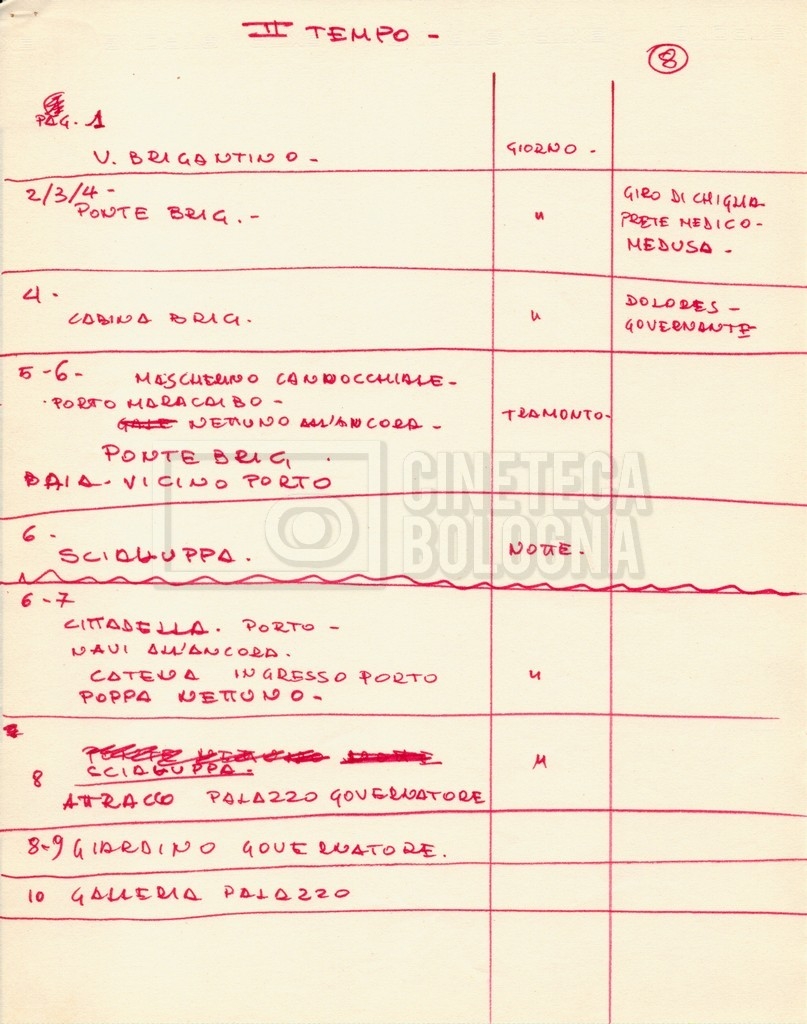 II TEMPO -
8
PAG. 1
V. BRIGANTINO -
GIORNO -
2/3/4 -
PONTE BRIG. -
"
GIRO DI CHIGLIA
PRETE MEDICO -
MEDUSA -
4 -
CABINA BRIG.
"
DOLORES -
GOVERNANTE
5 - 6 - MASCHERINO CANNOCCHIALE -
PORTO MARACAIBO -
NETTUNO ALL'ANCORA -
TRAMONTO -
PONTE BRIG.
BAIA - VICINO PORTO
CINETECA
BOLOGNA
6 -
SCIALUPPA.
NOTTE -
6 - 7
CITTADELLA. PORTO -
NAVI ALL'ANCORA.
CATENA INGRESSO PORTO
"
POPPA NETTUNO -
SCIALUPPA.
"
8
ATTRACCO PALAZZO GOVERNATORE
8-9 GIARDINO GOVERNATORE.
10 GALLERIA PALAZZO